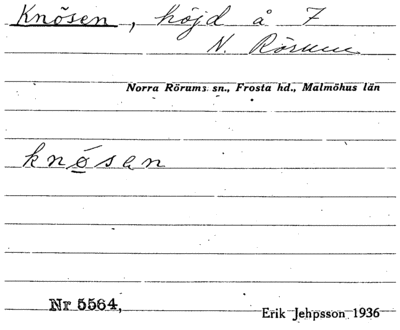 Knösen, höjd å 7
N. Rörum
Norra Rörums sn., Frosta hd., Malmöhus län
knösan
Nr 5564,
Erik Jehpsson 1936